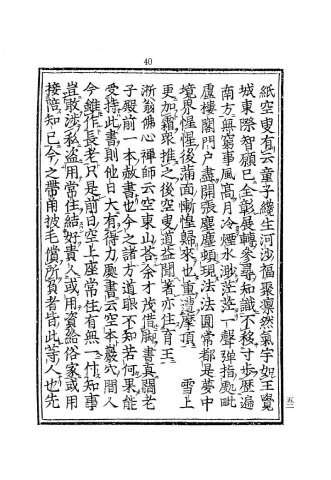 40
紙空叟有云童子纔生河沙福聚凛然氣宇如王覺
城東際智願已全彰展轉參尋知識不移寸步歷遍
南方無窮事風高月冷煙水渺茫茫一聲彈指毗
盧樓閣門戶盡開張塵塵頓現法法圓常都是夢中
境界惺惺後滿面慚惶歸來也重遭摩頂雪上
更加霜衆推之後空叟道益聞著亦住育王
浙翁佛心禪師云空東山荅余才茂借脚書真閻老
子殿前一本赦書也今之諸方道眼不知若何果能
受持此書則他日大有得力處書云空本巖穴閒人
今雖作長老只是前日空上座常住有無一付知事
豈敢涉私盜用常住結好貴人或用資給俗家或用
接陪知己今之帶角披毛償所負者皆此等人也先
五二